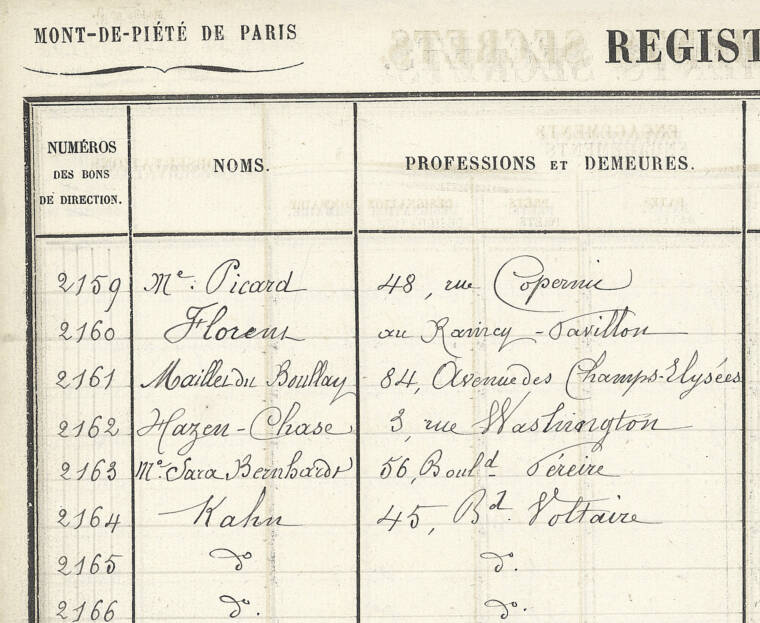 MONT-DE-PIÉTÉ DE PARIS
REGIST
NUMÉROS DES BONS DE DIRECTION. NOMS. PROFESSIONS ET DEMEURES.
2159 Me. Picard 48, rue Copernic
2160 Florent au Raincy-Pavillon
2161 Maillet du Boullay 84, Avenue des Champs-Elysées
2162 Hazen-Chase 3, rue Washington
2163 Me. Sara Bernhardt 56, Bould Péreire
2164 Kahn 45, Bd. Voltaire
2165 do do.
2166 do. do.